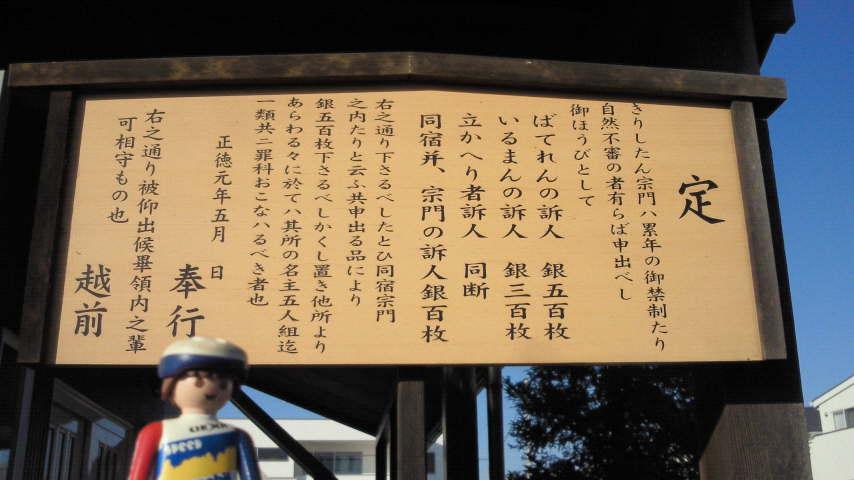 定
きりしたん宗門ハ累年の御禁制たり
自然不審の者有らば申出べし
御ほうびとして
ばてれんの訴人 銀五百枚
いるまんの訴人 銀三百枚
立かへり者訴人 同断
同宿并、宗門の訴人銀百枚
右之通り下さるべしたとひ同宿宗門
之内たりと云ふ共申出る品により
銀五百枚下さるべしかくし置き他所より
あらわるゝに於てハ其所の名主五人組迄
一類共ニ罪科おこなハるべき者也
正徳元年五月 日
奉行
右之通り被仰出候畢領内之輩
可相守もの也
越前